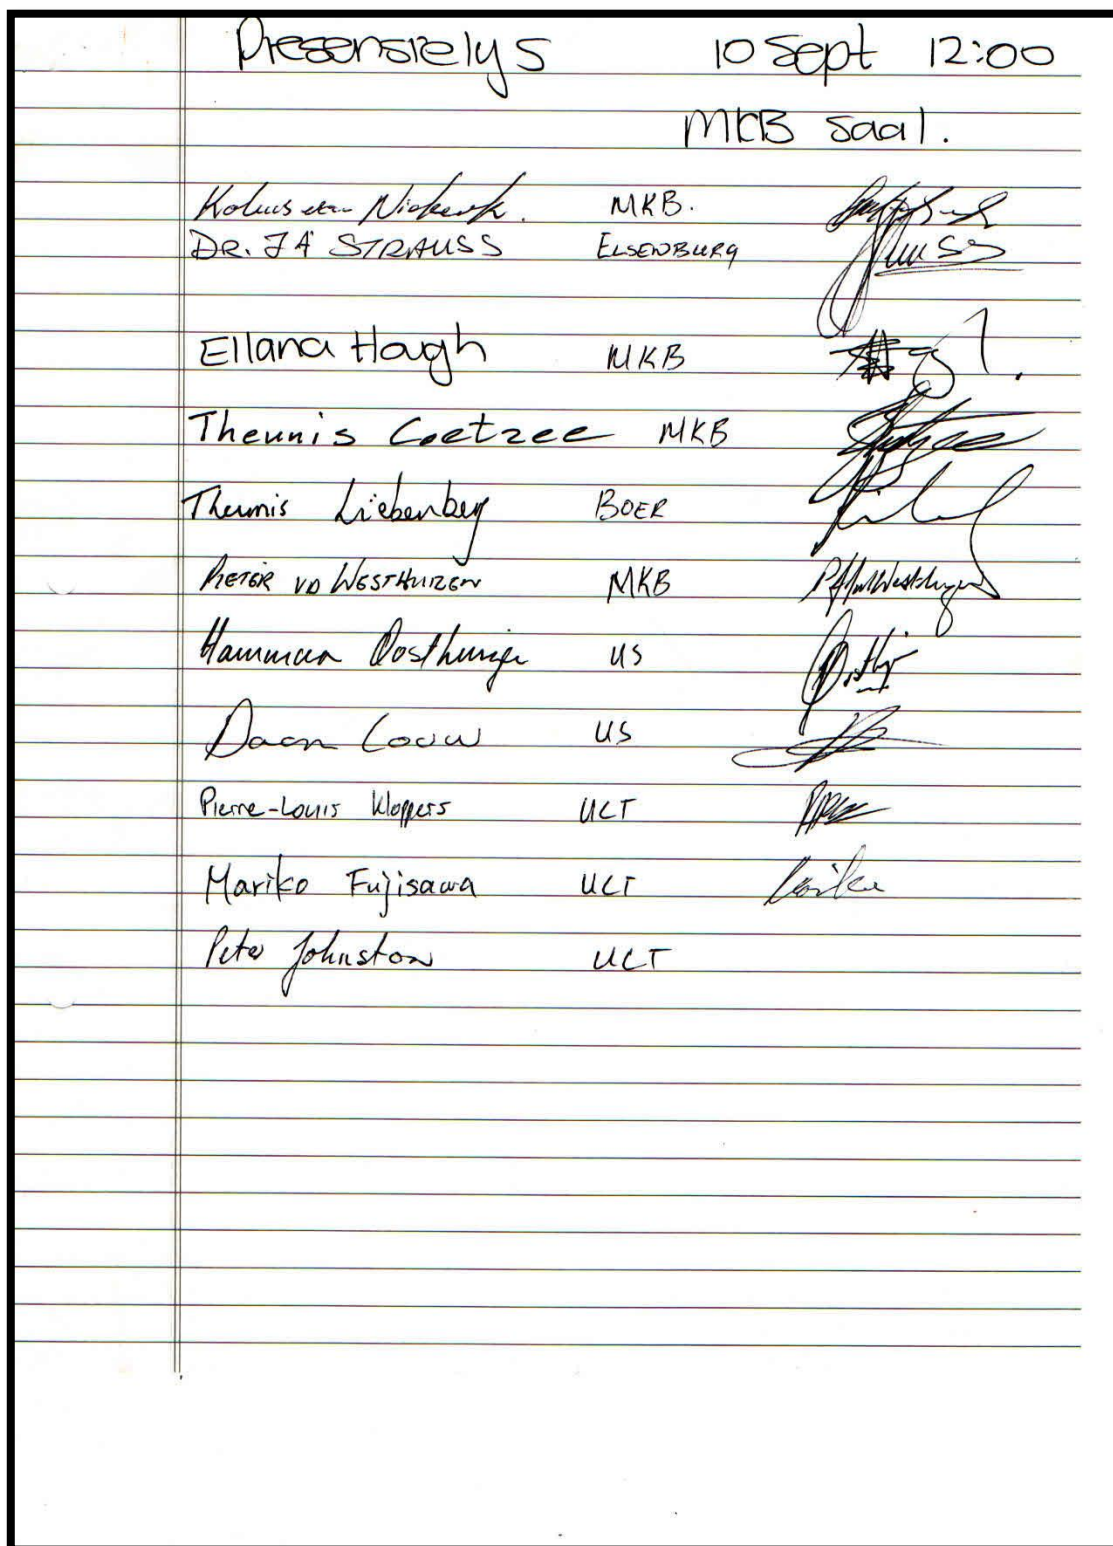 Presensielys 10 Sept 12:00
MKB saal.
Kobus van Niekerk. MKB.
DR. JA STRAUSS ELSENBURG
Ellana Hough MKB
Theunis Coetzee MKB
Theunis Liebenberg BOER
PIETER VD WESTHUIZEN MKB
Hamman Oosthuizen US
Daan Louw US
Pierre-Louis Kloppers UCT
Mariko Fujisawa UCT
Peter Johnston UCT